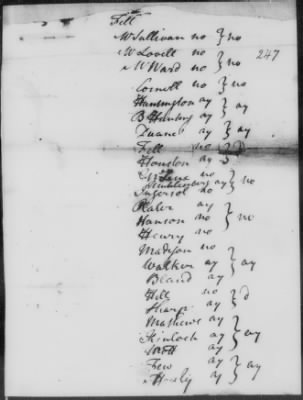 Fell
Mr Sullivan no } no
Mr Lovell no } no 247
Mr Ward no } no
Cornell no } no
Huntington ay } ay
B Hunting ay
Duane ay } ay
Fell no } d
Houston ay
no } no
Muhlenburg ay
Ingersol no
Plater ay
Hanson no } no
Henry no
Madison no
Walker ay } ay
Bland ay
Hill no } d
Sharpe ay
Mathews ay
Kinloch ay } ay
Mott ay
Few ay } ay
Howly ay